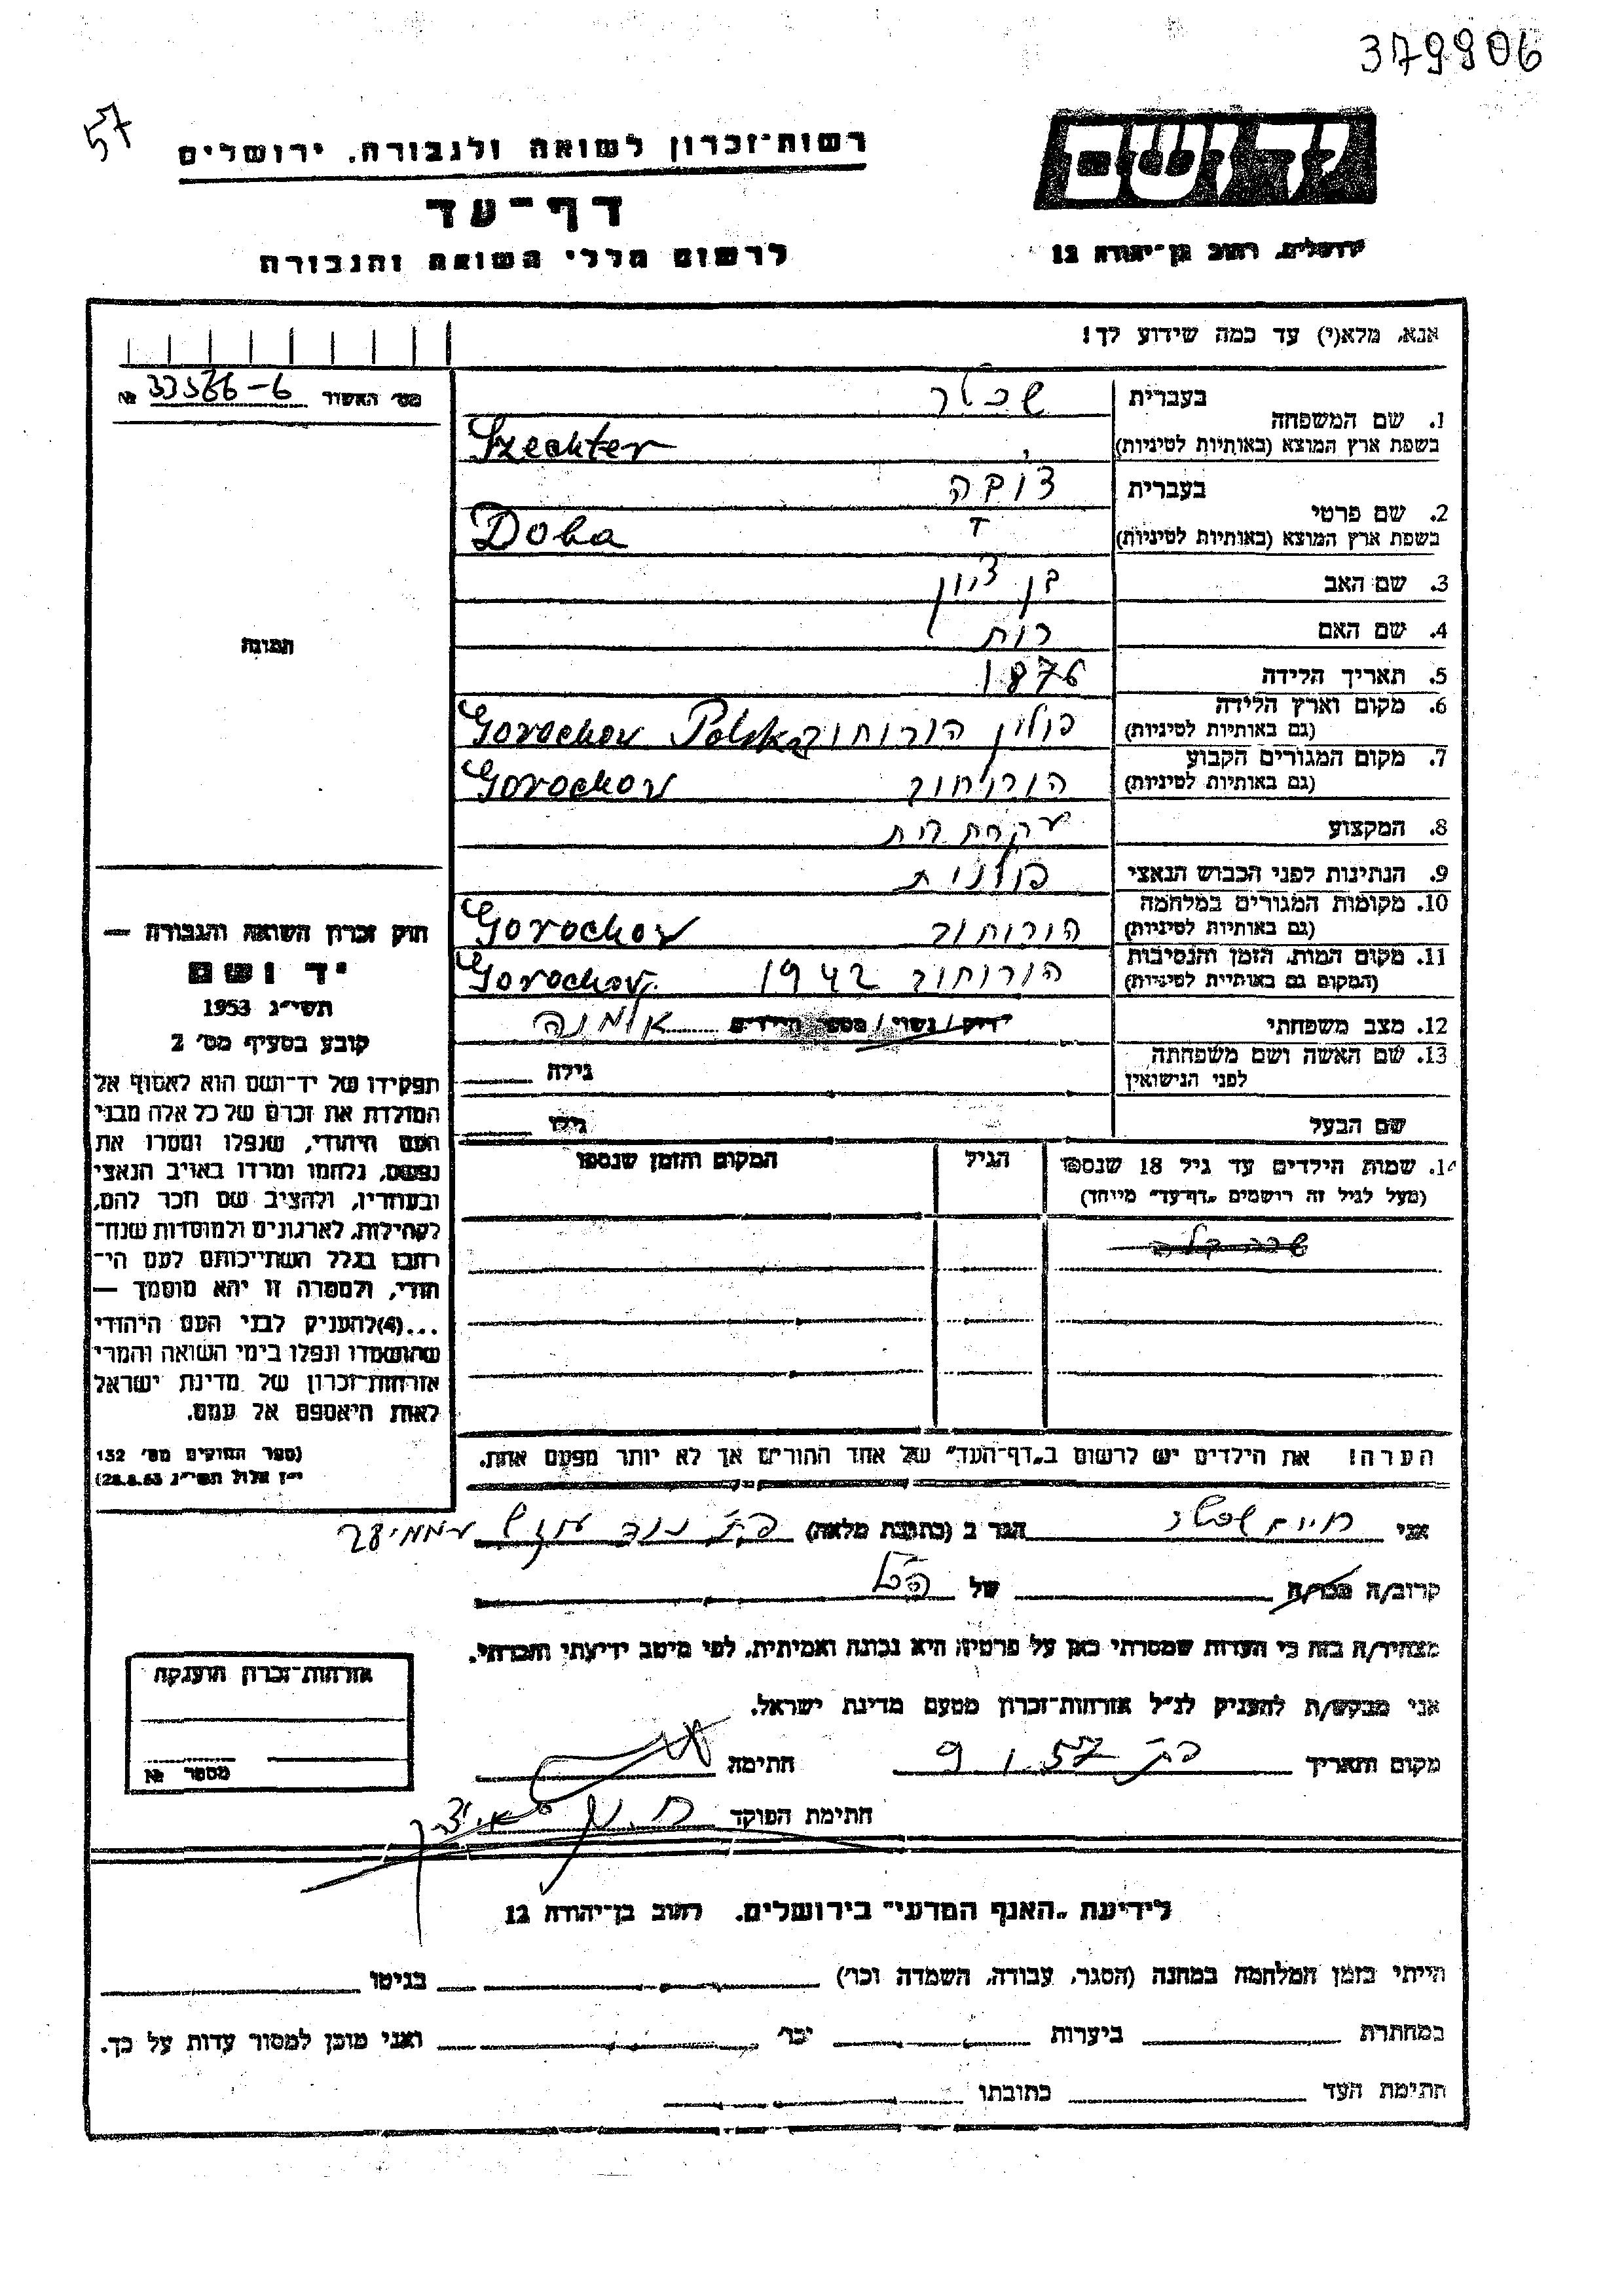 379906
57
יד ושם
רשות־זכרון לשואה ולגבורה, ירושלים
דף־עד
ירושלים, רחוב בן־יהודה 12
לרשום חללי השואה והגבורה
אנא, מלא(י) עד כמה שידוע לך!
מס׳ האשור № 33566-6
1. שם המשפחה
בעברית שכטר
בשפת ארץ המוצא (באותיות לטיניות) Szechter
2. שם פרטי
בעברית דובה
בשפת ארץ המוצא (באותיות לטיניות) Doba
3. שם האב בן ציון
4. שם האם רות
5. תאריך הלידה 1876
6. מקום וארץ הלידה פולין הורוחוב Gorochov Polska
(גם באותיות לטיניות)
7. מקום המגורים הקבוע הורוחוב Gorochov
(גם באותיות לטיניות)
8. המקצוע עקרת בית
9. הנתינות לפני הכבוש הנאצי פולנית
10. מקומות המגורים במלחמה הורוחוב Gorochov
(גם באותיות לטיניות)
11. מקום המות, הזמן והנסיבות הורוחוב 1942 Gorochov
(המקום גם באותיות לטיניות)
12. מצב משפחתי רווק / נשוי / מספר הילדים אלמנה
13. שם האשה ושם משפחתה
לפני הנישואין גילה
שם הבעל גילו
14. שמות הילדים עד גיל 18 שנספו הגיל המקום והזמן שנספו
(מעל לגיל זה רושמים „דף־עד” מיוחד)
הערה! את הילדים יש לרשום ב„דף־העד” של אחד ההורים אך לא יותר מפעם אחת.
תמונה
חוק זכרון השואה והגבורה —
יד ושם
תשי״ג 1953
קובע בסעיף מס׳ 2
תפקידו של יד־ושם הוא לאסוף אל
המולדת את זכרם של כל אלה מבני
העם היהודי, שנפלו ומסרו את
נפשם, נלחמו ומרדו באויב הנאצי
ובעוזריו, ולהציב שם וזכר להם,
לקהילות, לארגונים ולמוסדות שנח־
רבו בגלל השתייכותם לעם הי־
הודי, ולמטרה זו יהא מוסמך —
...(4)להעניק לבני העם היהודי
שהושמדו ונפלו בימי השואה והמרי
אזרחות־זכרון של מדינת ישראל
לאות היאספם אל עמם.
(ספר החוקים מס׳ 132
י״ז אלול תשי״ג 28.8.53)
אני חיים שכטר הגר ב (כתובת מלאה)
קרוב/ה מכר/ה של הנ״ל
מצהיר/ה בזה כי העדות שמסרתי כאן על פרטיה היא נכונה ואמיתית, לפי מיטב ידיעתי והכרתי.
אני מבקש/ת להעניק לנ״ל אזרחות־זכרון מטעם מדינת ישראל.
מקום ותאריך 9.1.57 חתימה
חתימת הפוקד
אזרחות־זכרון הוענקה
מספר №
לידיעת „האגף המדעי” בירושלים, רחוב בן־יהודה 12
הייתי בזמן המלחמה במחנה (הסגר, עבודה, השמדה וכו׳) בגיטו
במחתרת ביערות וכו׳ ואני מוכן למסור עדות על כך.
חתימת העד כתובתו